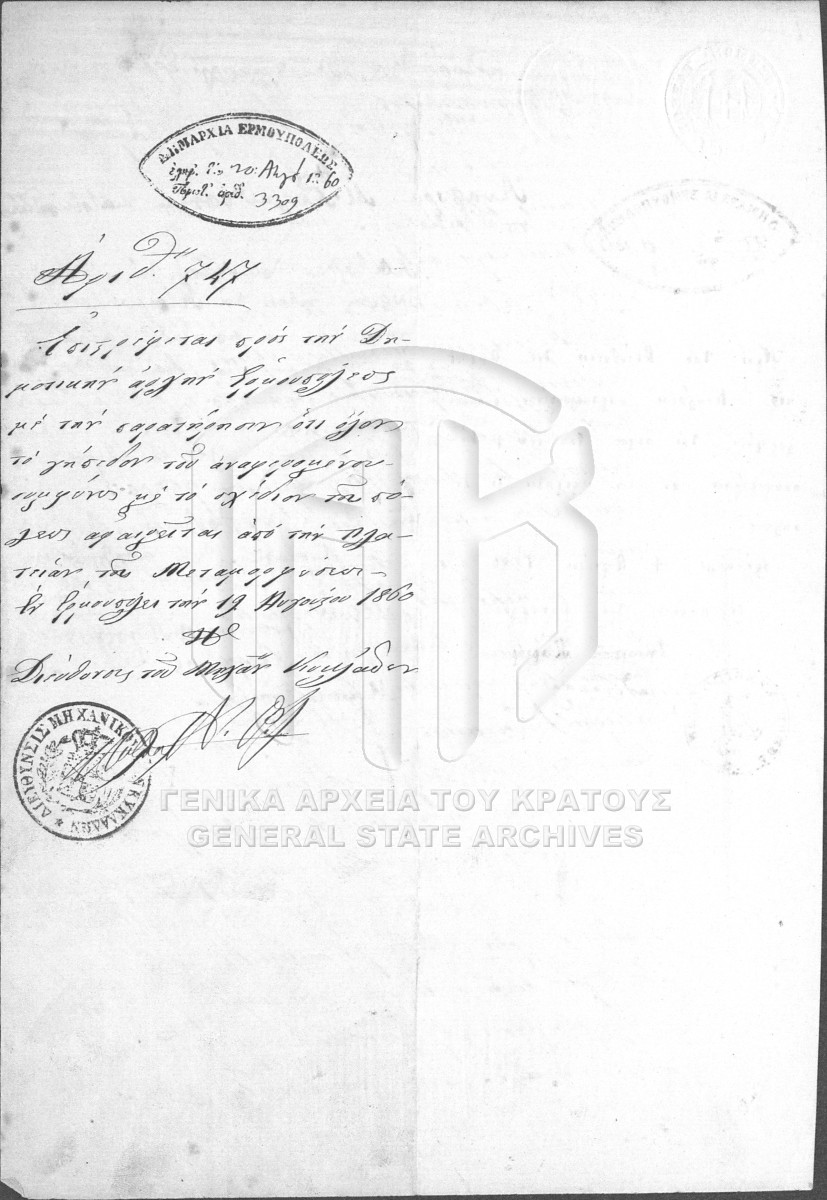 ΔΗΜΑΡΧΙΑ ΕΡΜΟΥΠΟΛΕΩΣ
ἐλήφ. τῇ 20 Αὐγ 1860
Πρωτ. ἀριθ. 3309
Ἀριθ. 747
Ἐπιστρέφεται πρὸς τὴν Δη-
μοτικὴν ἀρχὴν Ἑρμουπόλεως
μὲ τὴν παρατήρησιν ὅτι ὅλον
τὸ γήπεδον τοῦ ἀναφερομένου
συμφώνως μὲ τὸ σχέδιον τῆς πό-
λεως ἀφαιρεῖται ἀπὸ τὴν πλα-
τεῖαν τῆς Μεταμορφώσεως
Ἐν Ἑρμουπόλει τὴν 19 Αὐγούστου 1860
Ἡ
Διεύθυνσις τοῦ Μηχαν Κυκλάδων
ΔΙΕΥΘΥΝΣΙΣ ΜΗΧΑΝΙΚΟΥ ΚΥΚΛΑΔΩΝ
ΓΕΝΙΚΑ ΑΡΧΕΙΑ ΤΟΥ ΚΡΑΤΟΥΣ
GENERAL STATE ARCHIVES